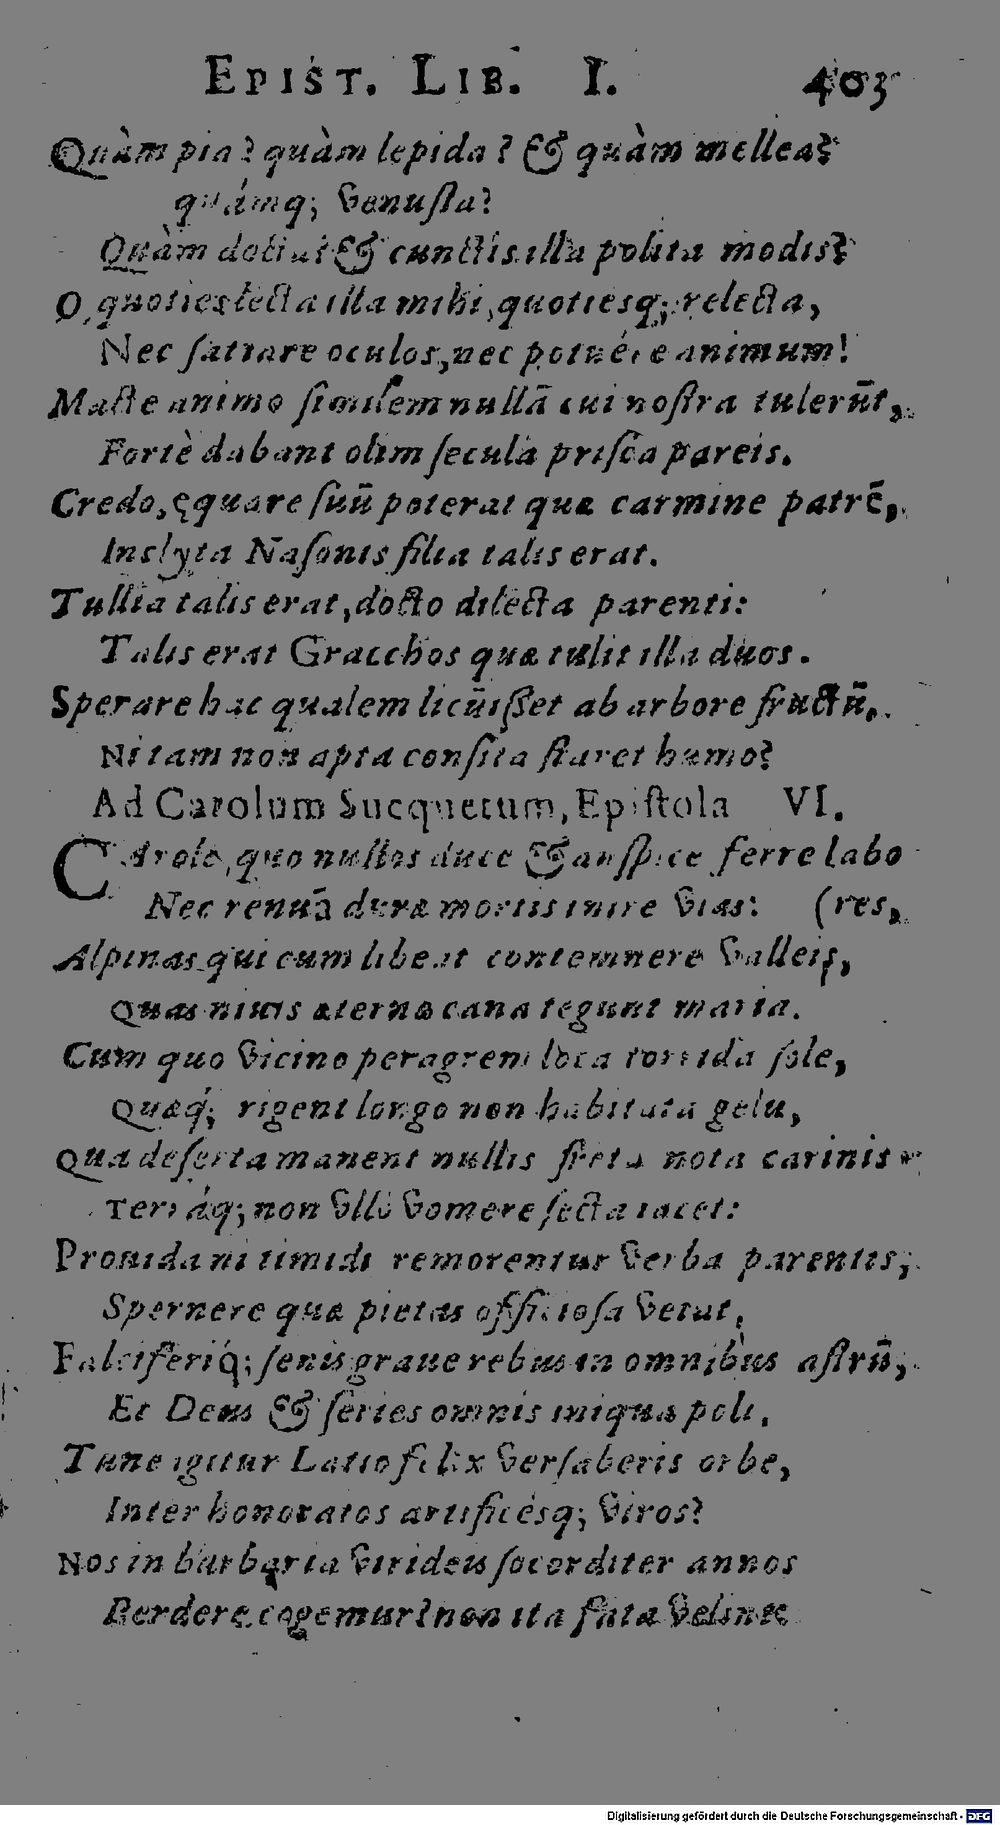 EPIST. LIB. I. 403
Quàm pia? quàm lepida? & quàm mellea?
quámq; venuſta?
Quàm docta & cunctis illa polita modis?
O quoties lecta illa mihi, quotiesq; relecta,
Nec ſatiare oculos, nec potuére animum!
Macte animo ſimilem nullã cui noſtra tulerũt,
Fortè dabant olim ſecula priſca pareis.
Credo, ęquare ſuũ poterat quæ carmine patrẽ,
Inclyta Naſonis filia talis erat.
Tullia talis erat, docto dilecta parenti:
Talis erat Gracchos quæ tulit illa duos.
Sperare hac qualem licuiſſet ab arbore fructũ,
Ni tam non apta conſita ſtaret humo?
Ad Carolum Sucquetum, Epiſtola VI.
CArole, quo nullos duce & auſpice ferre labo
Nec renuã duræ mortis inire vias: (res,
Alpinas qui cum libeat contemnere valleis,
Quas niuis æternæ cana tegunt maria.
Cum quo vicino peragrem loca torrida ſole,
Quæq́; rigent longo non habitata gelu,
Qua deſerta manent nullis freta nota carinis
Terráq; non vllo vomere ſecta iacet:
Prouida ni timidi remorentur verba parentis,
Spernere quæ pietas officioſa vetat,
Falciferiq́; ſenis graue rebus in omnibus aſtrũ,
Et Deus & ſeries omnis iniqua poli,
Tune igitur Latio felix verſaberis orbe,
Inter honoratos artificésq; viros?
Nos in barbaria virideis ſocorditer annos
Perdere cogemur? non ita fata velint
Digitalisierung gefördert durch die Deutsche Forschungsgemeinschaft - DFG